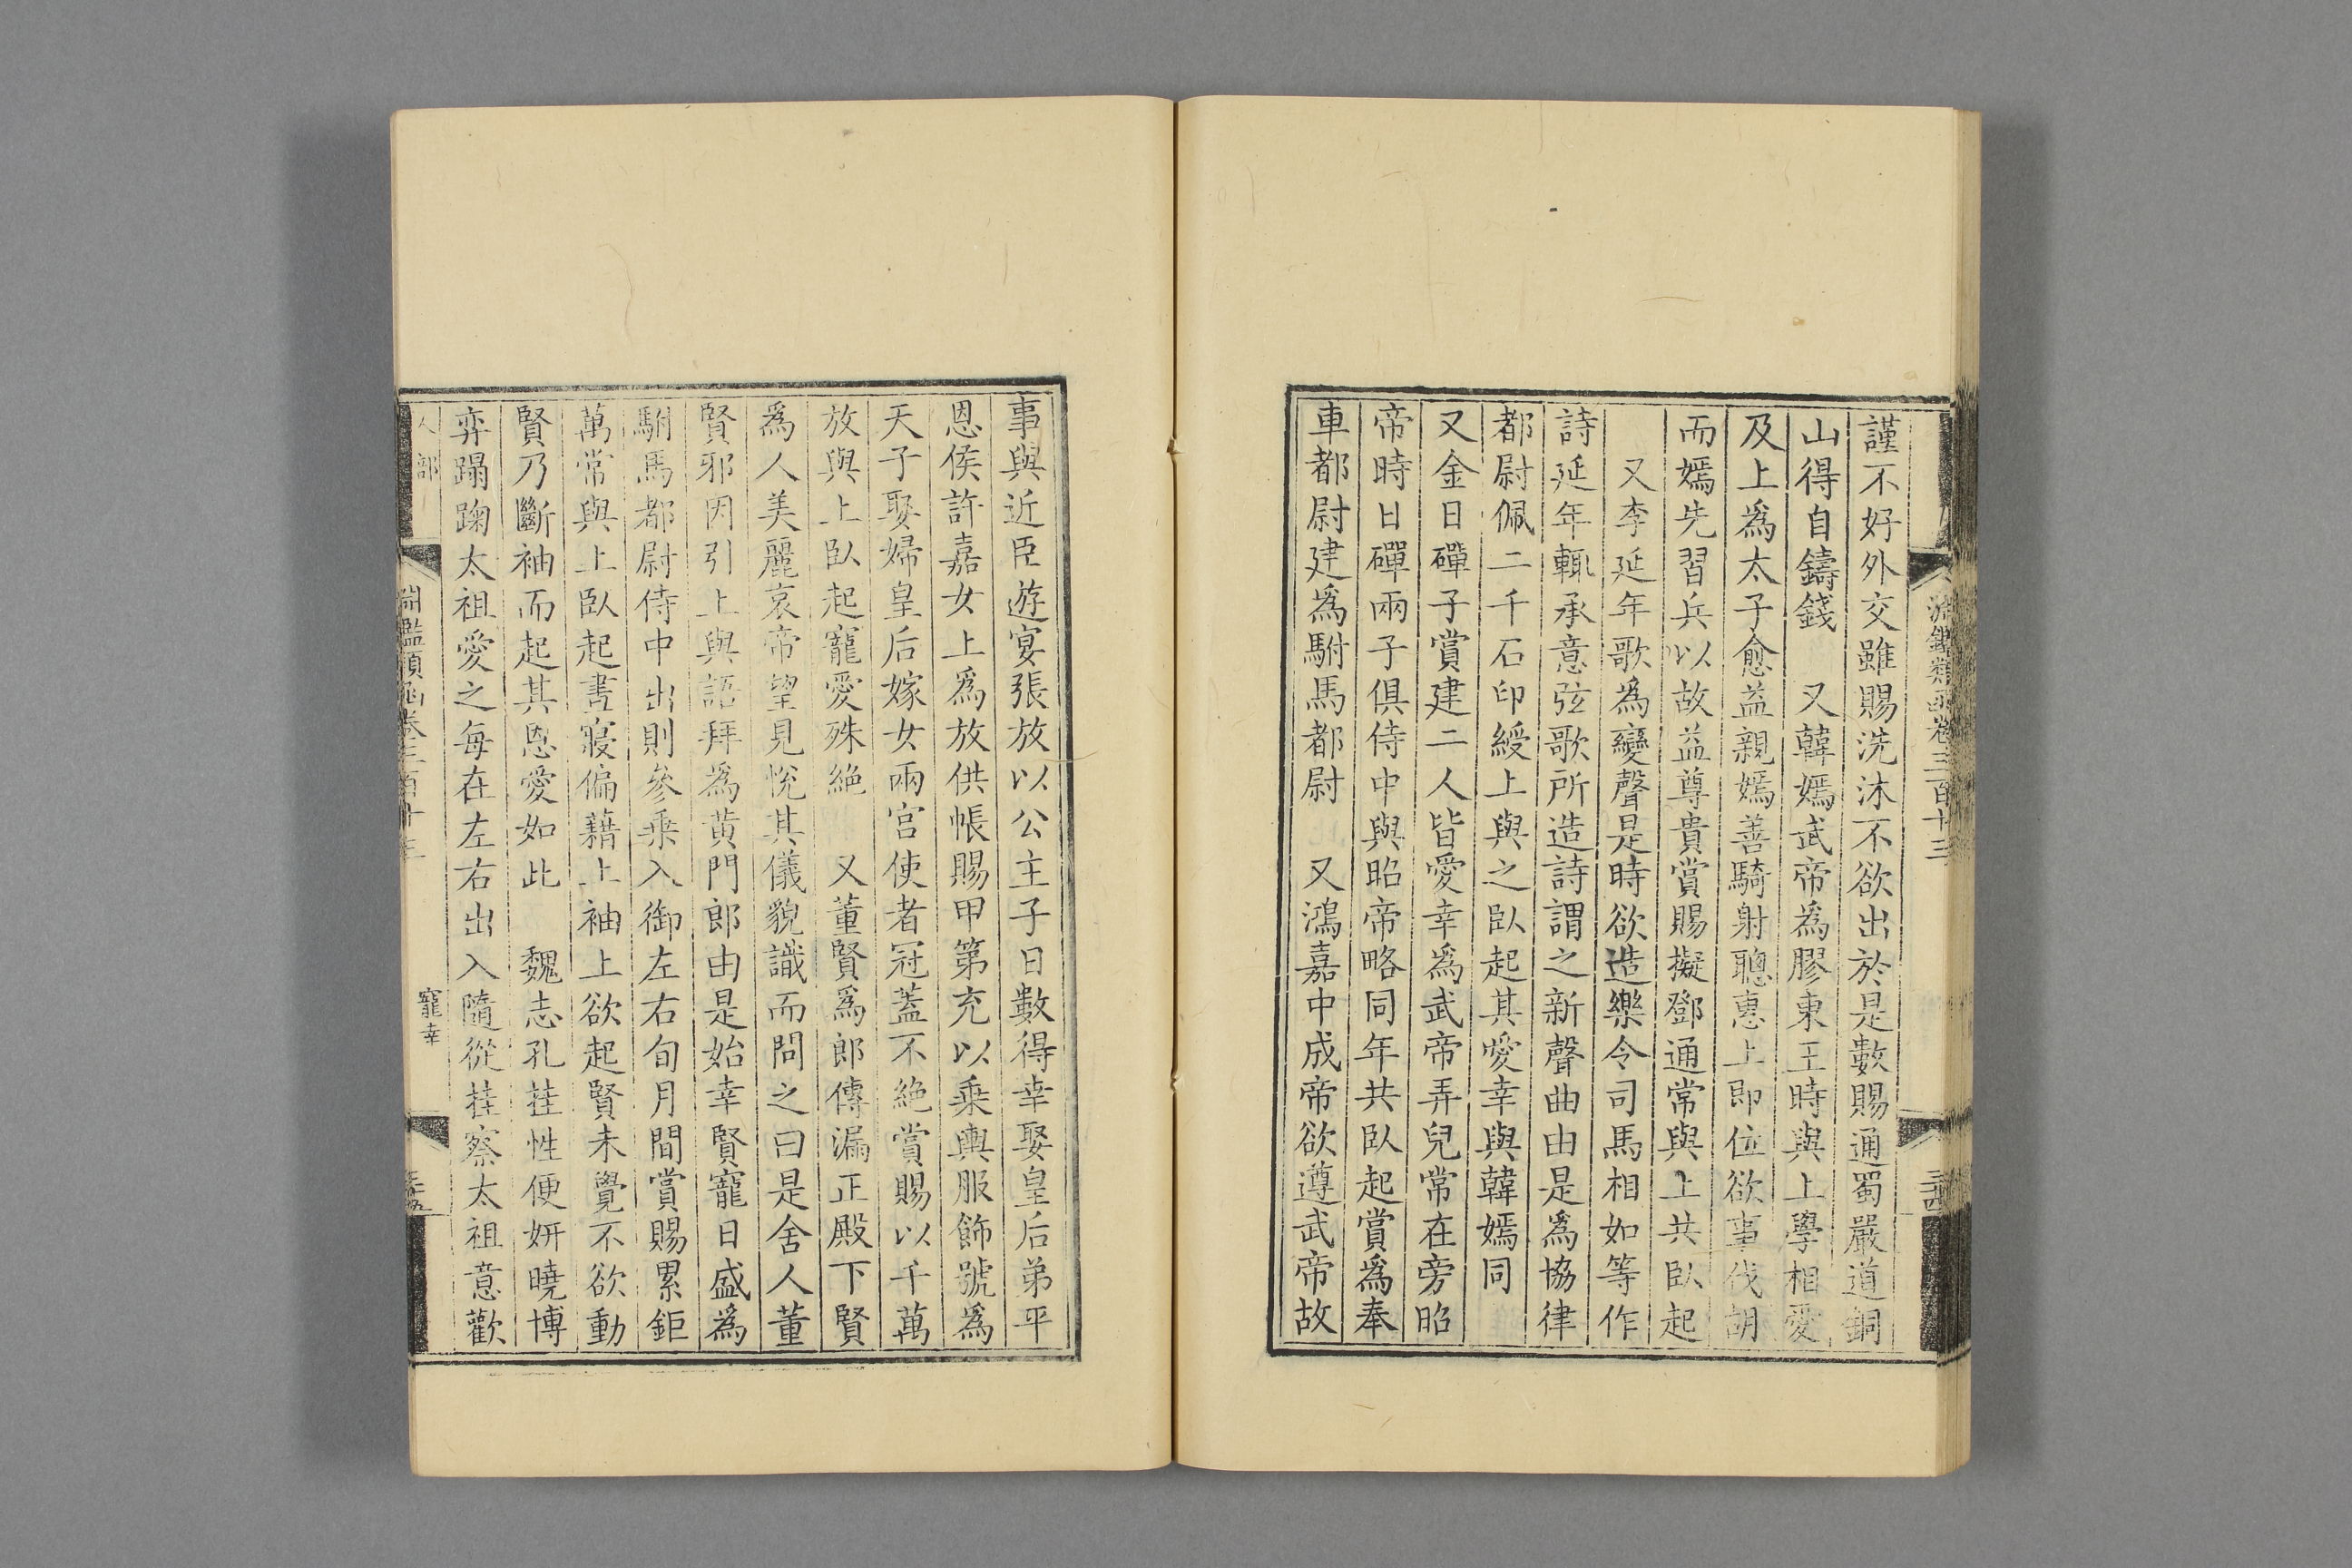 淵鑑類函卷三百十三
三十四
謹不好外交雖賜洗沐不欲出於是數賜通蜀嚴道銅
山得自鑄錢　又韓嫣武帝為膠東王時與上學相愛
及上爲太子愈益親嫣善騎射聰惠上即位欲事伐胡
而嫣先習兵以故益尊貴賞賜擬鄧通常與上共臥起
又李延年歌為變聲是時欲造樂令司馬相如等作
詩延年輒承意弦歌所造詩謂之新聲曲由是爲協律
都尉佩二千石印綬上與之臥起其愛幸與韓嫣同
又金日磾子賞建二人皆愛幸爲武帝弄兒常在旁昭
帝時日磾兩子俱侍中與昭帝略同年共臥起賞爲奉
車都尉建爲駙馬都尉　又鴻嘉中成帝欲遵武帝故
事與近臣遊宴張放以公主子日數得幸娶皇后弟平
恩侯許嘉女上爲放供帳賜甲第充以乘輿服飾號爲
天子娶婦皇后嫁女兩宮使者冠蓋不絶賞賜以千萬
放與上臥起寵愛殊絶　又董賢爲郎傳漏正殿下賢
爲人美麗哀帝望見悅其儀貌識而問之曰是舍人董
賢邪因引上與語拜爲黃門郎由是始幸賢寵日盛爲
駙馬都尉侍中出則參乘入御左右旬月間賞賜累鉅
萬常與上臥起晝寢偏藉上袖上欲起賢未覺不欲動
賢乃斷袖而起其恩愛如此　魏志孔桂性便妍曉博
弈蹋踘太祖愛之每在左右出入隨從桂察太祖意歡
人部
淵鑑類函卷三百十三
寵幸
三十五